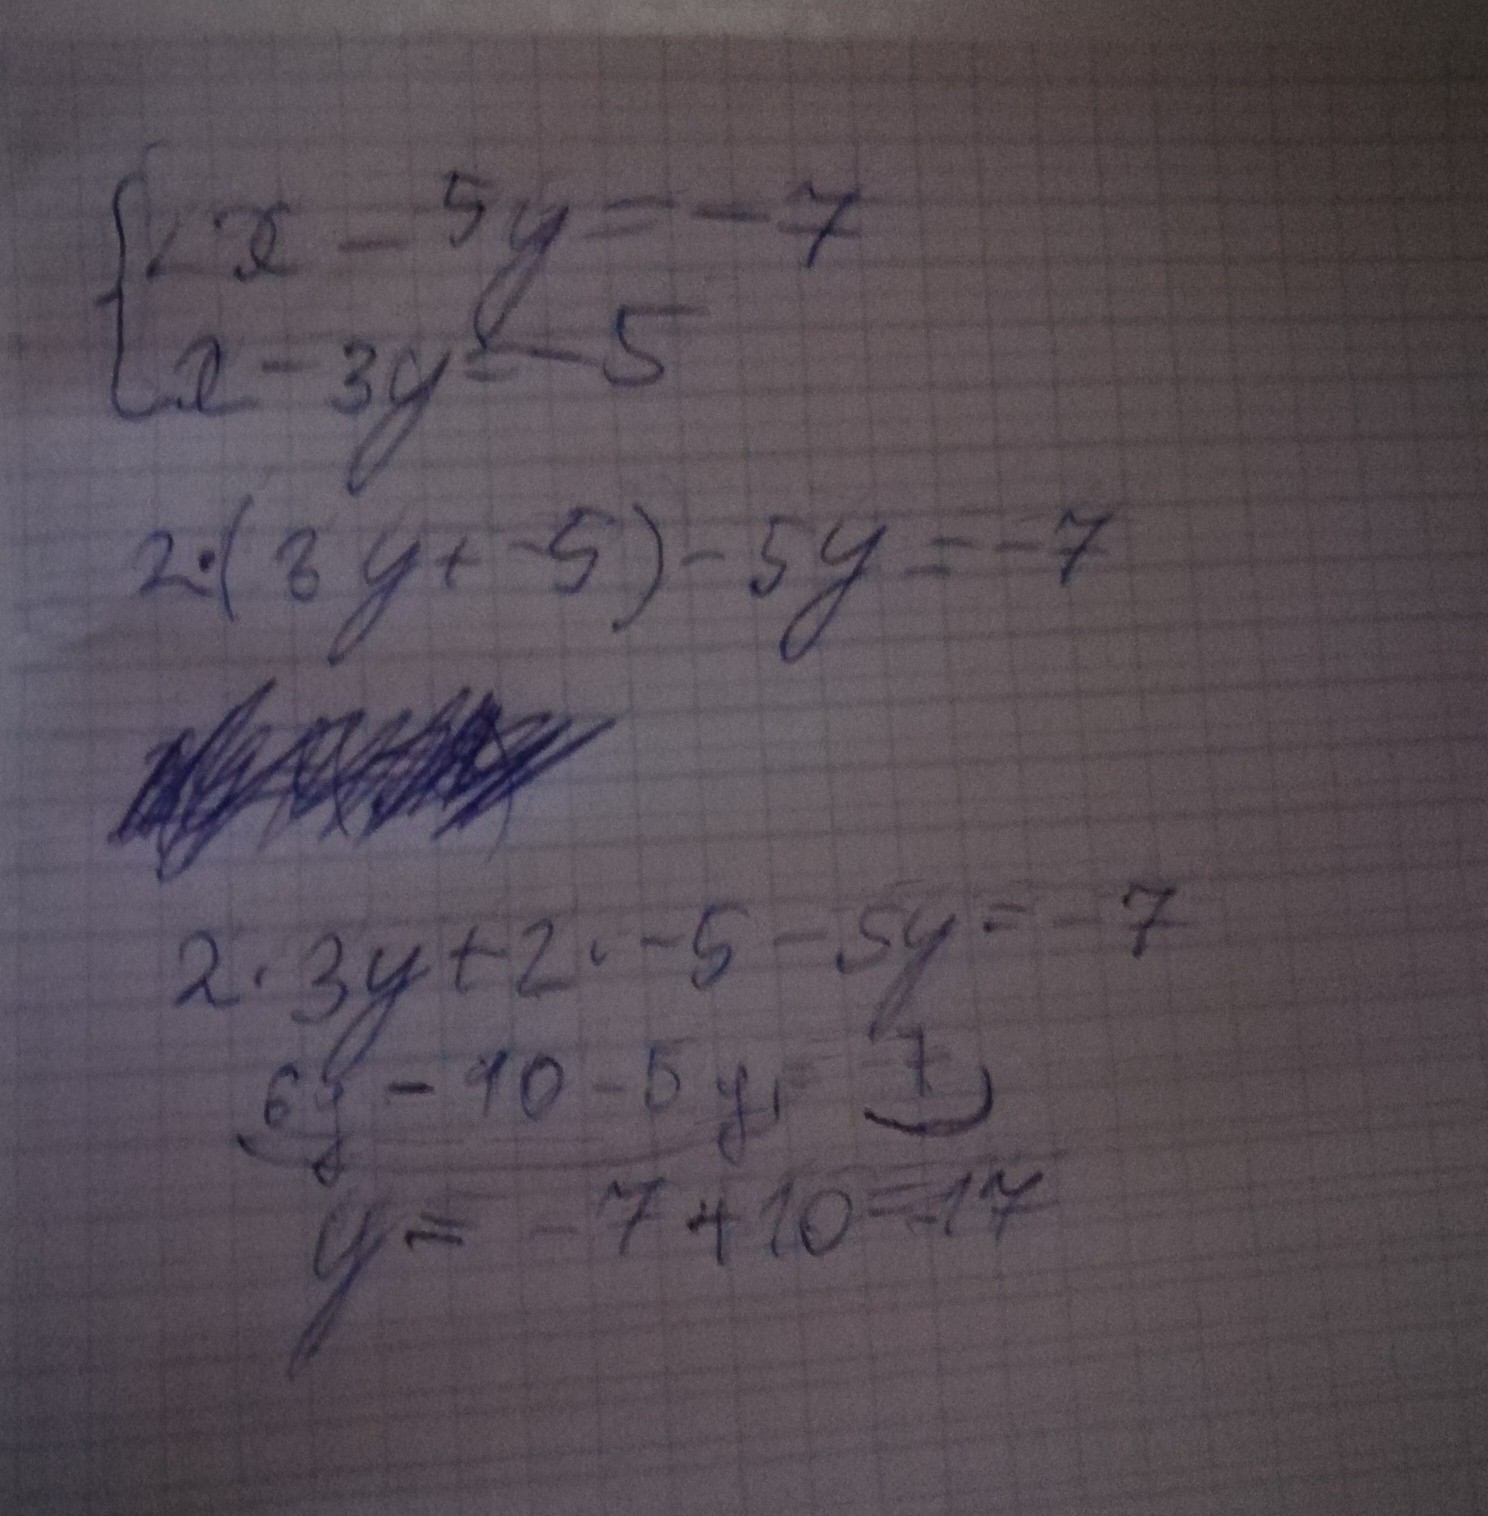 2x - 5y = -7
x - 3y = -5
2·(3y + -5) - 5y = -7
2·3y + 2·-5 - 5y = -7
6y - 10 - 5y = -7
y = -7 + 10 = -17